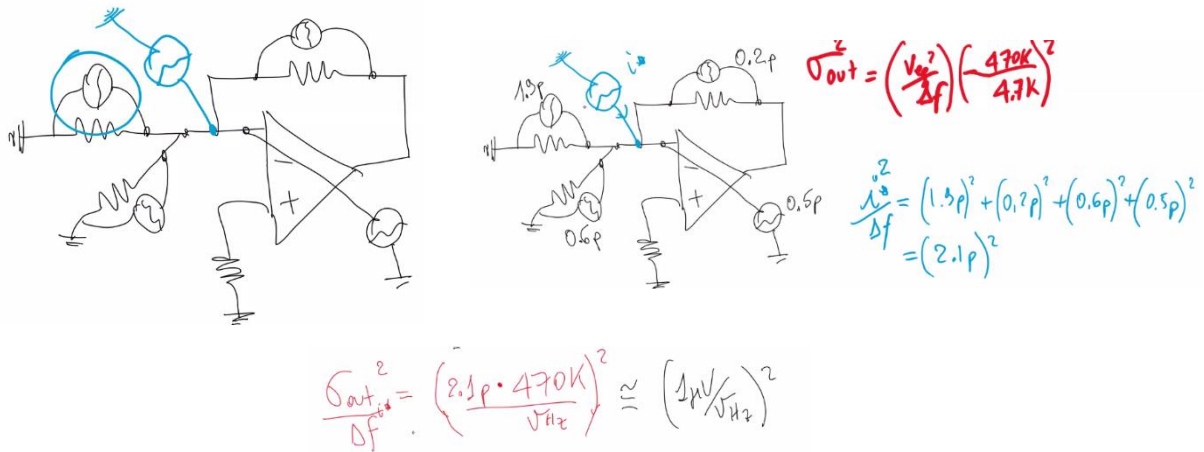 −
+
1.9p
i*
0.2p
−
+
0.6p
0.5p
σout² = (Veq²/Δf)(−470K/4.7K)²
i*²/Δf = (1.9p)² + (0,2p)² + (0.6p)² + (0.5p)²
= (2.1p)²
σout²/Δf i* = (2.1p • 470K/√Hz)² ≅ (1μV/√Hz)²